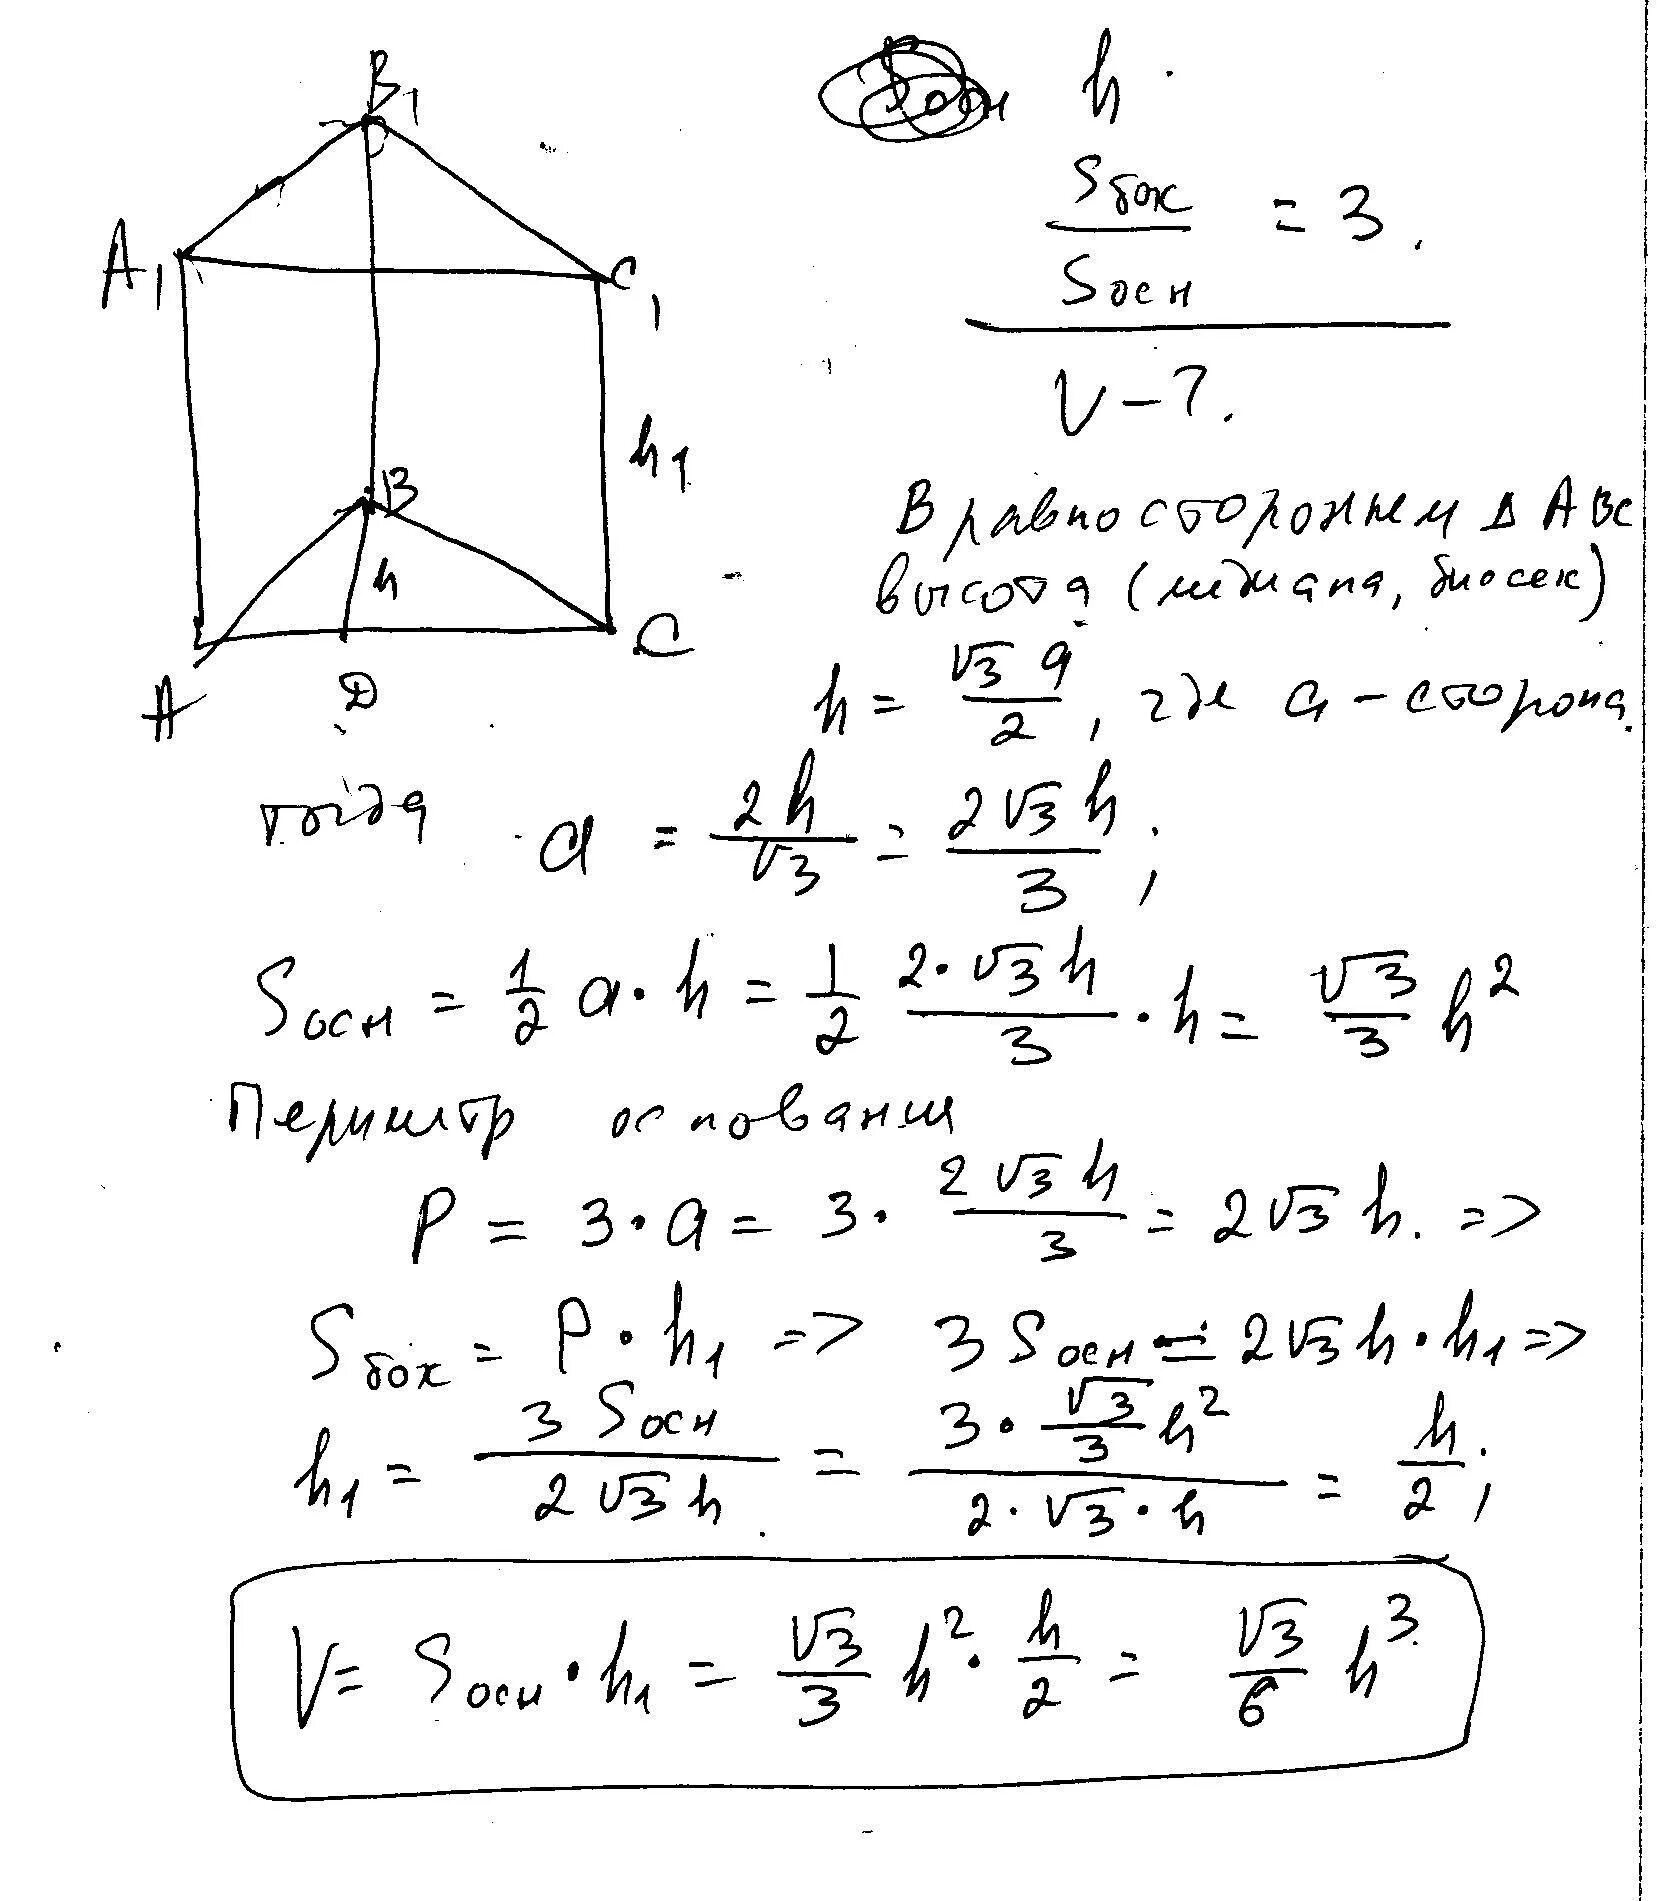 B₁
A₁
C₁
h₁
B
h
A
D
C
Sосн h
Sбок / Sосн = 3.
V – ?
В равностороннем Δ ABC
высота (медиана, биссек)
h = √3 a / 2, где a – сторона.
тогда a = 2h / √3 = 2√3 h / 3;
Sосн = 1/2 a · h = 1/2 2·√3 h / 3 · h = √3 / 3 h²
Периметр основания
P = 3 · a = 3 · 2√3 h / 3 = 2√3 h. =>
Sбок = P · h₁ => 3 Sосн = 2√3 h · h₁ =>
h₁ = 3 Sосн / 2√3 h = 3 · √3/3 h² / 2 · √3 · h = h / 2;
V = Sосн · h₁ = √3 / 3 h² · h / 2 = √3 / 6 h³